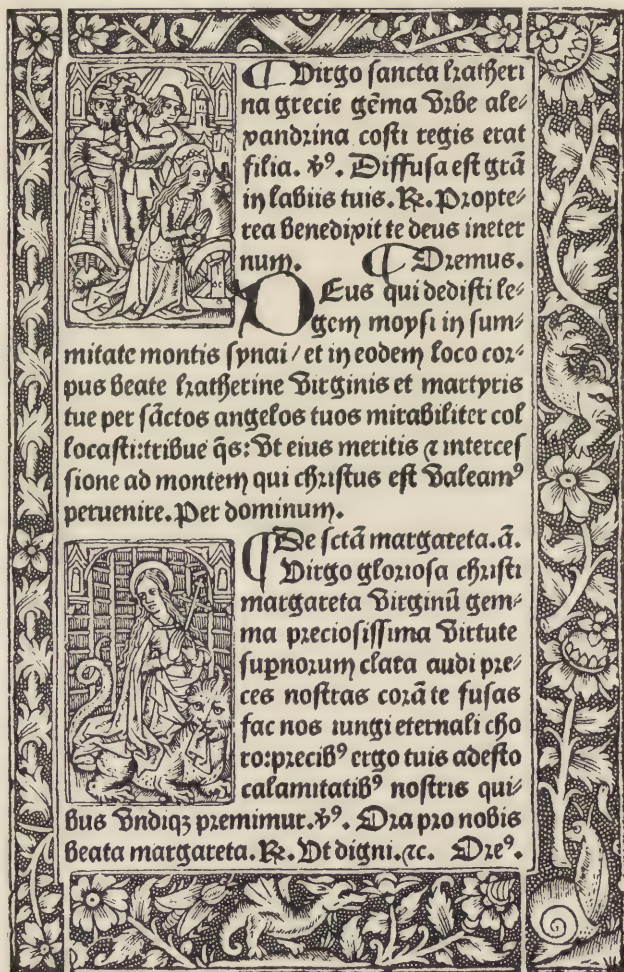 ¶ Virgo sancta katheri
na grecie gēma vrbe ale⸗
xandrina costi regis erat
filia. ℣ꝰ. Diffusa est grā
in labiis tuis. ℞. Propte⸗
rea benedixit te deus ineter
num. ¶ Oremus.
DEus qui dedisti le⸗
gem moysi in sum⸗
mitate montis synai / et in eodem loco cor⸗
pus beate katherine virginis et martyris
tue per sāctos angelos tuos mirabiliter col
locasti: tribue q̄s: vt eius meritis ⁊ interces
sione ad montem qui christus est valeamꝰ
peruenire. Per dominum.
¶ De sctā margareta. ā.
Virgo gloriosa christi
margareta virginū gem⸗
ma preciosissima virtute
supnorum clara audi pre⸗
ces nostras corā te fusas
fac nos iungi eternali cho
ro: precibꝰ ergo tuis adesto
calamitatibꝰ nostris qui⸗
bus vndiqꝫ premimur. ℣ꝰ. Ora pro nobis
beata margareta. ℞. Vt digni. ⁊c. Oreꝰ.